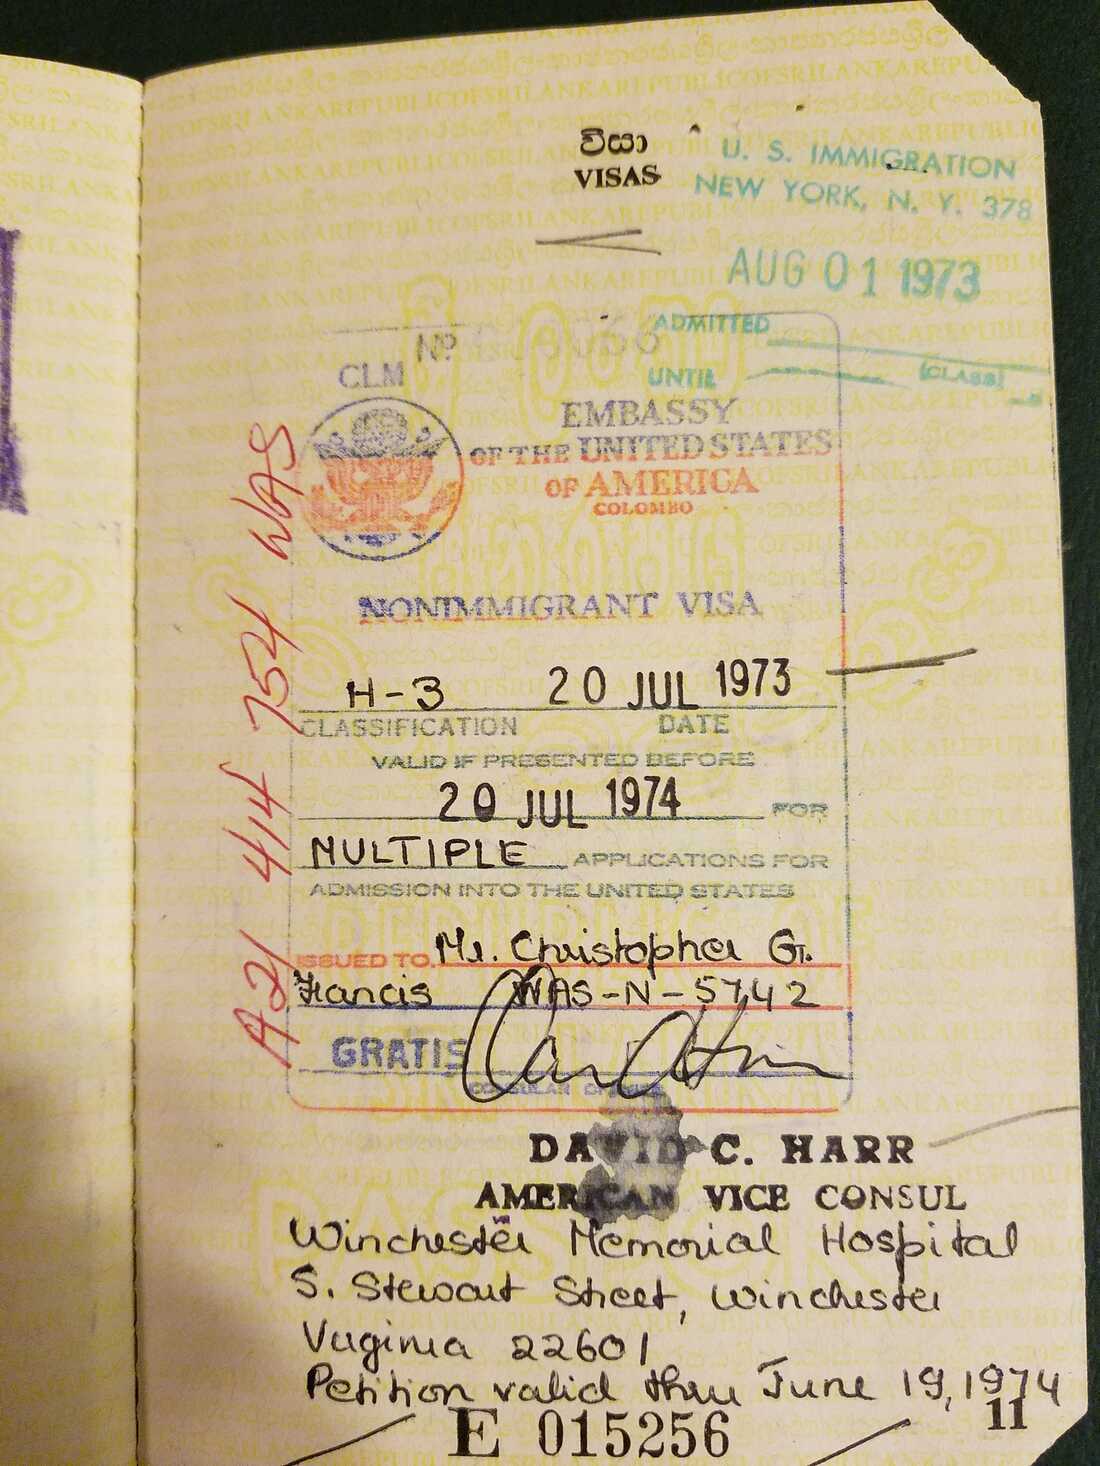 වීසා
VISAS
U. S. IMMIGRATION
NEW YORK, N. Y. 378
AUG 01 1973
ADMITTED
(CLASS)
UNTIL
Nº
CLM
EMBASSY
OF THE UNITED STATES
OF AMERICA
COLOMBO
NONIMMIGRANT VISA
H-3 20 JUL 1973
CLASSIFICATION DATE
VALID IF PRESENTED BEFORE
20 JUL 1974 FOR
MULTIPLE APPLICATIONS FOR
ADMISSION INTO THE UNITED STATES
ISSUED TO. Mr. Christopher G.
Francis WAS-N-5742
GRATIS
CONSULAR OFFICER
DAVID C. HARR
AMERICAN VICE CONSUL
Winchester Memorial Hospital
S. Stewart Street, Winchester
Virginia 22601
Petition valid thru June 19, 1974
E 015256
11
A21 414 754 WAS